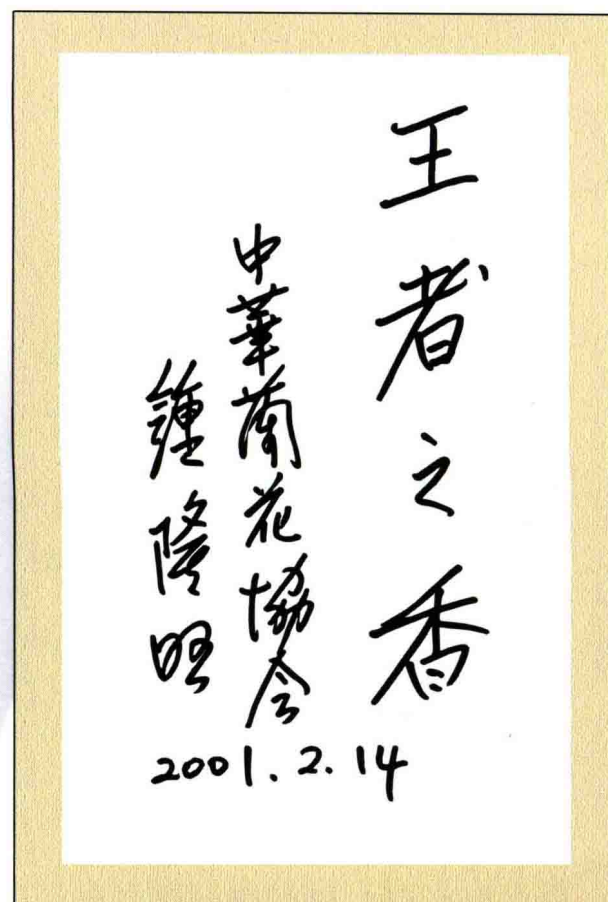 王者之香
中華蘭花協会
鍾隆旺
2001.2.14